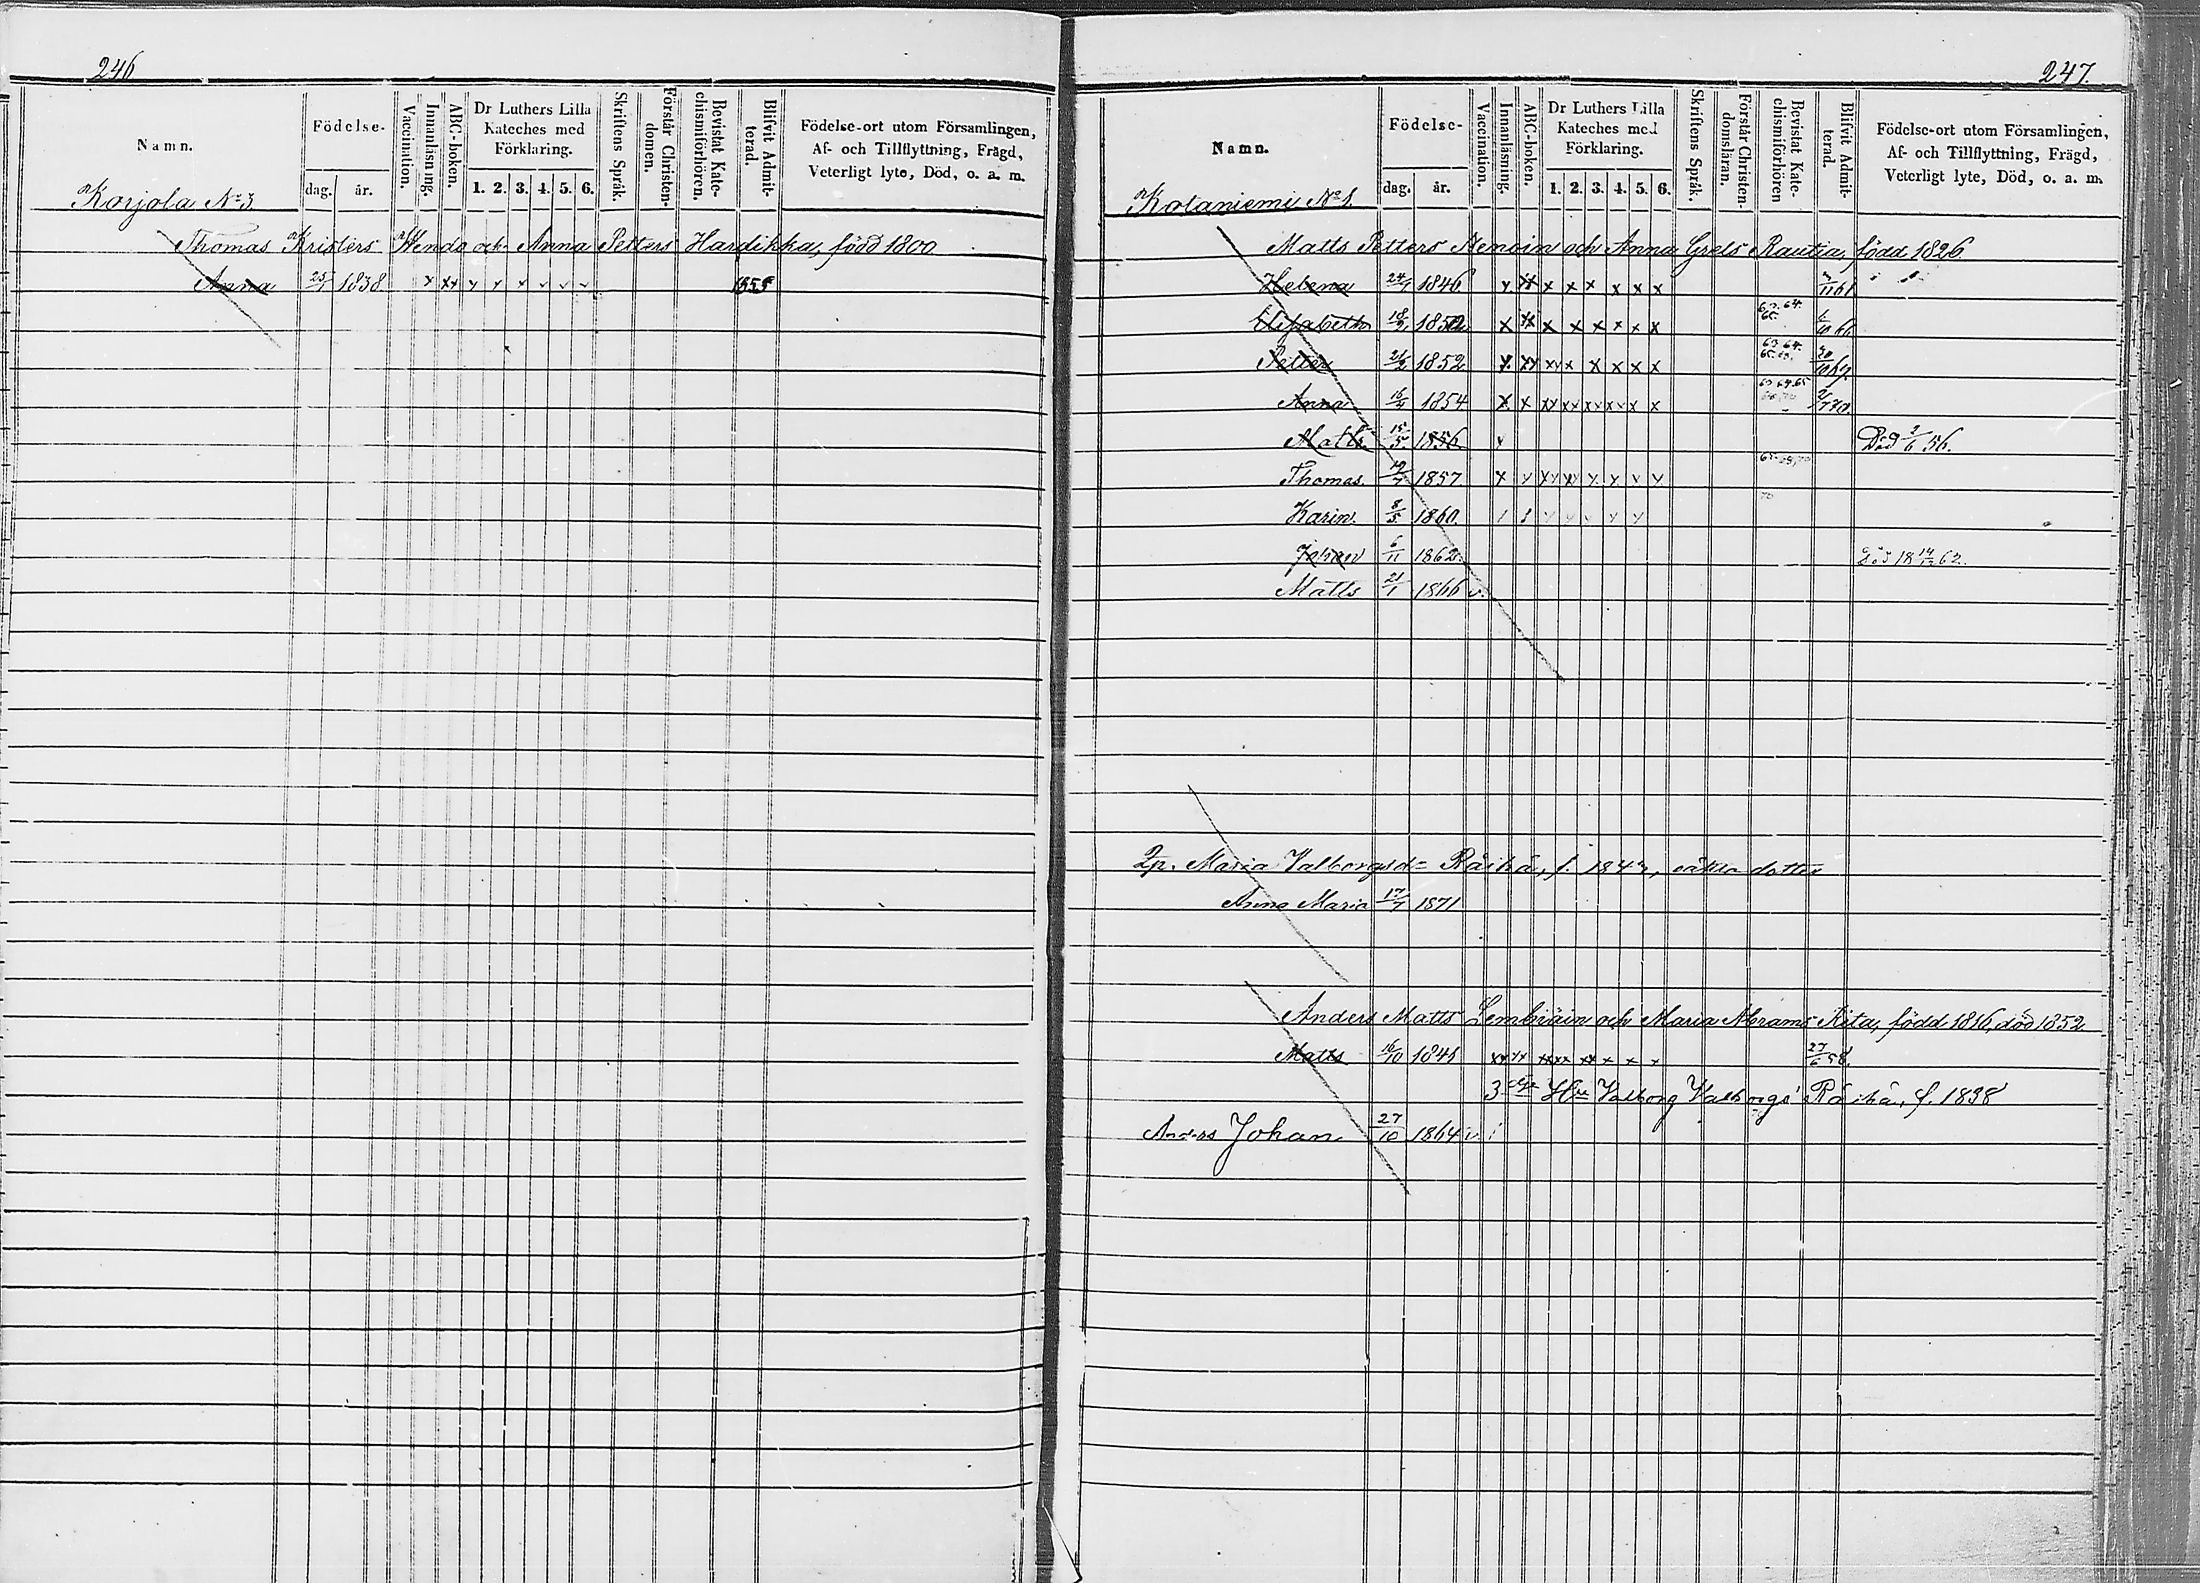 246
Namn.
Födelse-
dag. år.
Vaccination.
Innanläsning.
ABC-boken.
Dr Luthers Lilla
Kateches med
Förklaring.
1. 2. 3. 4. 5. 6.
Skriftens Språk.
Förstår Christen-
domen.
Bevistat Kate-
chismiförhören.
Blifvit Admit-
terad.
Födelse-ort utom Församlingen,
Af- och Tillflyttning, Frägd,
Veterligt lyte, Död, o. a. m.
Korjola No 3.
Thomas Kristers Wende och Anna Petters Hardikka, född 1800
Anna 25/1 1838 x xx 1855
247.
Namn.
Födelse-
dag. år.
Vaccination.
Innanläsning.
ABC-boken.
Dr Luthers Lilla
Kateches med
Förklaring.
1. 2. 3. 4. 5. 6.
Skriftens Språk.
Förstår Christen-
domsläran.
Bevistat Kate-
chismiförhören
Blifvit Admit-
terad.
Födelse-ort utom Församlingen,
Af- och Tillflyttning, Frägd,
Veterligt lyte, Död, o. a. m.
Kotaniemi No 1.
Matts Petters och Anna Grels Rautia, född 1826
Helena 24/1 1846 x x x x x x
Elisabeth 18/2 1850 x x x x x x x 63. 64. 65.
Petter 21/2 1852 x x x x x 63. 64.
Anna 16/4 1854 x x xx xx xx xx x x 63. 64. 65
Matts 15/5 1856 Död 2/6 56.
Thomas. 1857
Karin. 8/5 1860. 70
Johan 6/11 1862. Död 18 14/12 62.
Matts 21/1 1866 v.
Maria Valborgsd. Räihä, f. dotter
Anna Maria 17/7 1871
Anders Matts Lembiäin och Maria Abrams Kita, född 1816, död 1852
Matts 16/10 1841 27/6 58.
3 Valborg Valborgs Räihä, f. 1838
Anders Johan 27/10 1864 v.